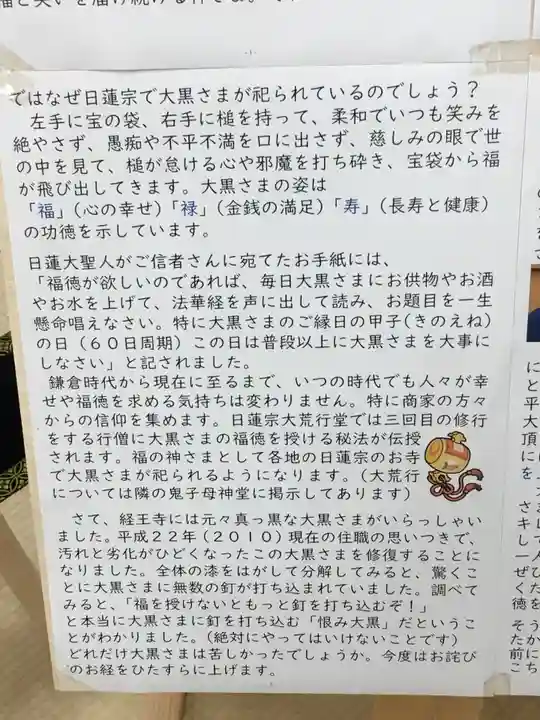 ではなぜ日蓮宗で大黒さまが祀られているのでしょう？
左手に宝の袋、右手に槌を持って、柔和でいつも笑みを
絶やさず、愚痴や不平不満を口に出さず、慈しみの眼で世
の中を見て、槌が怠ける心や邪魔を打ち砕き、宝袋から福
が飛び出してきます。大黒さまの姿は
「福」（心の幸せ）「禄」（金銭の満足）「寿」（長寿と健康）
の功徳を示しています。
日蓮大聖人がご信者さんに宛てたお手紙には、
「福徳が欲しいのであれば、毎日大黒さまにお供物やお酒
やお水を上げて、法華経を声に出して読み、お題目を一生
懸命唱えなさい。特に大黒さまのご縁日の甲子（きのえね）
の日（６０日周期）この日は普段以上に大黒さまを大事に
しなさい」と記されました。
鎌倉時代から現在に至るまで、いつの時代でも人々が幸
せや福徳を求める気持ちは変わりません。特に商家の方々
からの信仰を集めます。日蓮宗大荒行堂では三回目の修行
をする行僧に大黒さまの福徳を授ける秘法が伝授
されます。福の神さまとして各地の日蓮宗のお寺
で大黒さまが祀られるようになります。（大荒行
については隣の鬼子母神堂に掲示してあります）
さて、経王寺には元々真っ黒な大黒さまがいらっしゃい
ました。平成２２年（２０１０）現在の住職の思いつきで、
汚れと劣化がひどくなったこの大黒さまを修復することに
なりました。全体の漆をはがして分解してみると、驚くこ
とに大黒さまに無数の釘が打ち込まれていました。調べて
みると、「福を授けないともっと釘を打ち込むぞ！」
と本当に大黒さまに釘を打ち込む「恨み大黒」だというこ
とがわかりました。（絶対にやってはいけないことです）
どれだけ大黒さまは苦しかったでしょうか。今度はお詫び
のお経をひたすらに上げます。